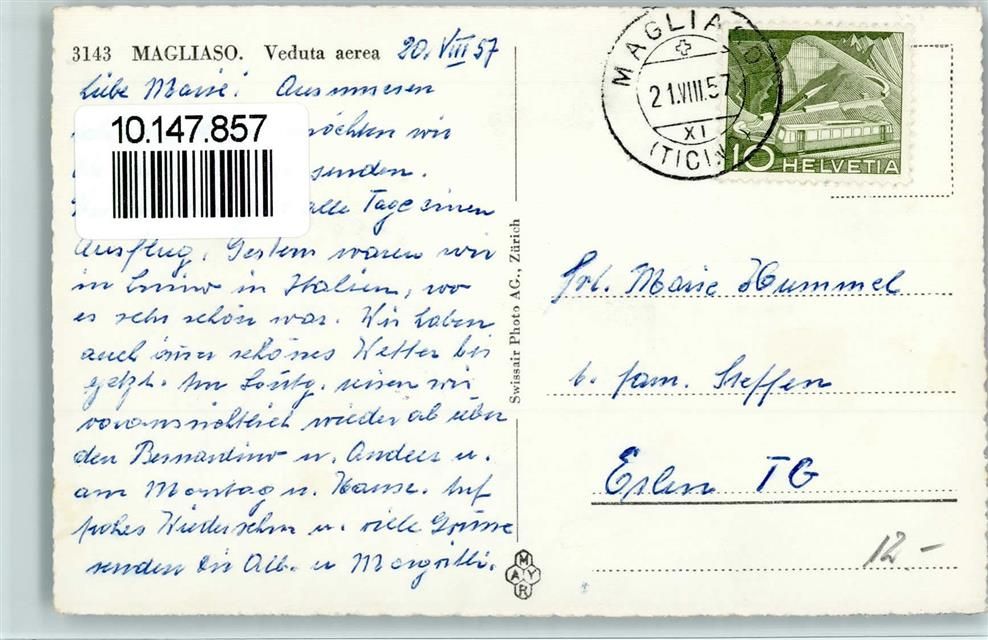 3143 MAGLIASO. Veduta aerea 20. VIII 57
Liebe Marie! Aus unseren
möchten wir
senden.
alle Tage einen
Ausflug. Gestern waren wir
in Luino in Italien, wo
es sehr schön war. Wir haben
auch immer schönes Wetter bis
jetzt. Am Sontg. reisen wir
voraussichtlich wieder ab über
den Bernardino u. Andeer u.
am Montag n. Hause. Auf
frohes Wiedersehn u. viele Grüsse
senden Dir Alb. u Margritli.
10.147.857
Swissair Photo AG., Zürich
MAYR
MAGLIASO
21.VIII.57
XI
(TICINO)
10 HELVETIA
Frl. Marie Hummel
b. fam. Steffen
Erlen TG
12.-